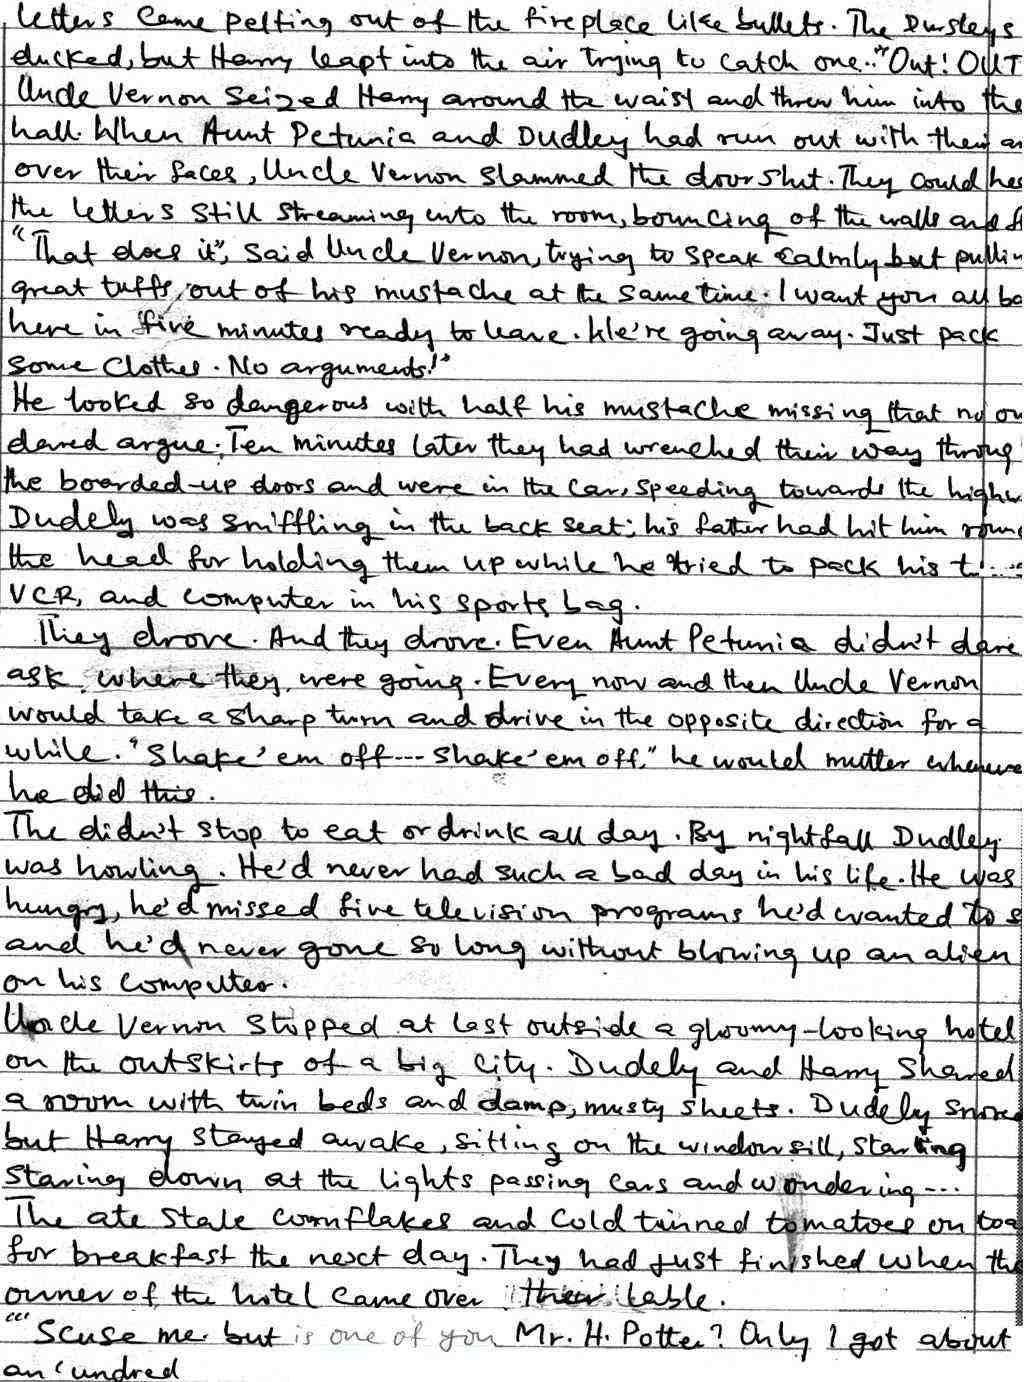 letters came pelting out of the fireplace like bullets. The Dursleys
ducked, but Harry leapt into the air trying to catch one.. "Out! OUT
Uncle Vernon seized Harry around the waist and threw him into the
hall. When Aunt Petunia and Dudley had run out with their
over their faces, Uncle Vernon slammed the door shut. They could hea
the letters still streaming into the room, bouncing of the walls and
"That does it", said Uncle Vernon, trying to speak calmly but pullin
great tuffs, out of his mustache at the same time. I want you all ba
here in five minutes ready to leave. We're going away. Just pack
some clothes. No arguments!"
He looked so dangerous with half his mustache missing that no on
dared argue. Ten minutes later they had wrenched their way throug
the boarded-up doors and were in the car, speeding towards the highw
Dudely was sniffling in the back seat; his father had hit him roun
the head for holding them up while he tried to pack his
VCR, and computer in his sports bag.
They drove. And they drove. Even Aunt Petunia didn't dare
ask where they were going. Every now and then Uncle Vernon
would take a sharp turn and drive in the opposite direction for a
while. "Shake 'em off--- Shake 'em off," he would mutter wheneve
he did this.
The didn't stop to eat or drink all day. By nightfall Dudley
was howling. He'd never had such a bad day in his life. He was
hungry, he'd missed five television programs he'd wanted to s
and he'd never gone so long without blowing up an alien
on his computer.
Uncle Vernon stopped at last outside a gloomy-looking hotel
on the outskirts of a big city. Dudely and Harry shared
a room with twin beds and damp, musty sheets. Dudely snored
but Harry stayed awake, sitting on the windowsill, starting
staring down at the lights passing cars and wondering---
The ate stale cornflakes and cold tinned tomatoes on toa
for breakfast the next day. They had just finished when the
owner of the hotel came over their table.
"'Scuse me. but is one of you Mr. H. Potter? Only I got about
an 'undred